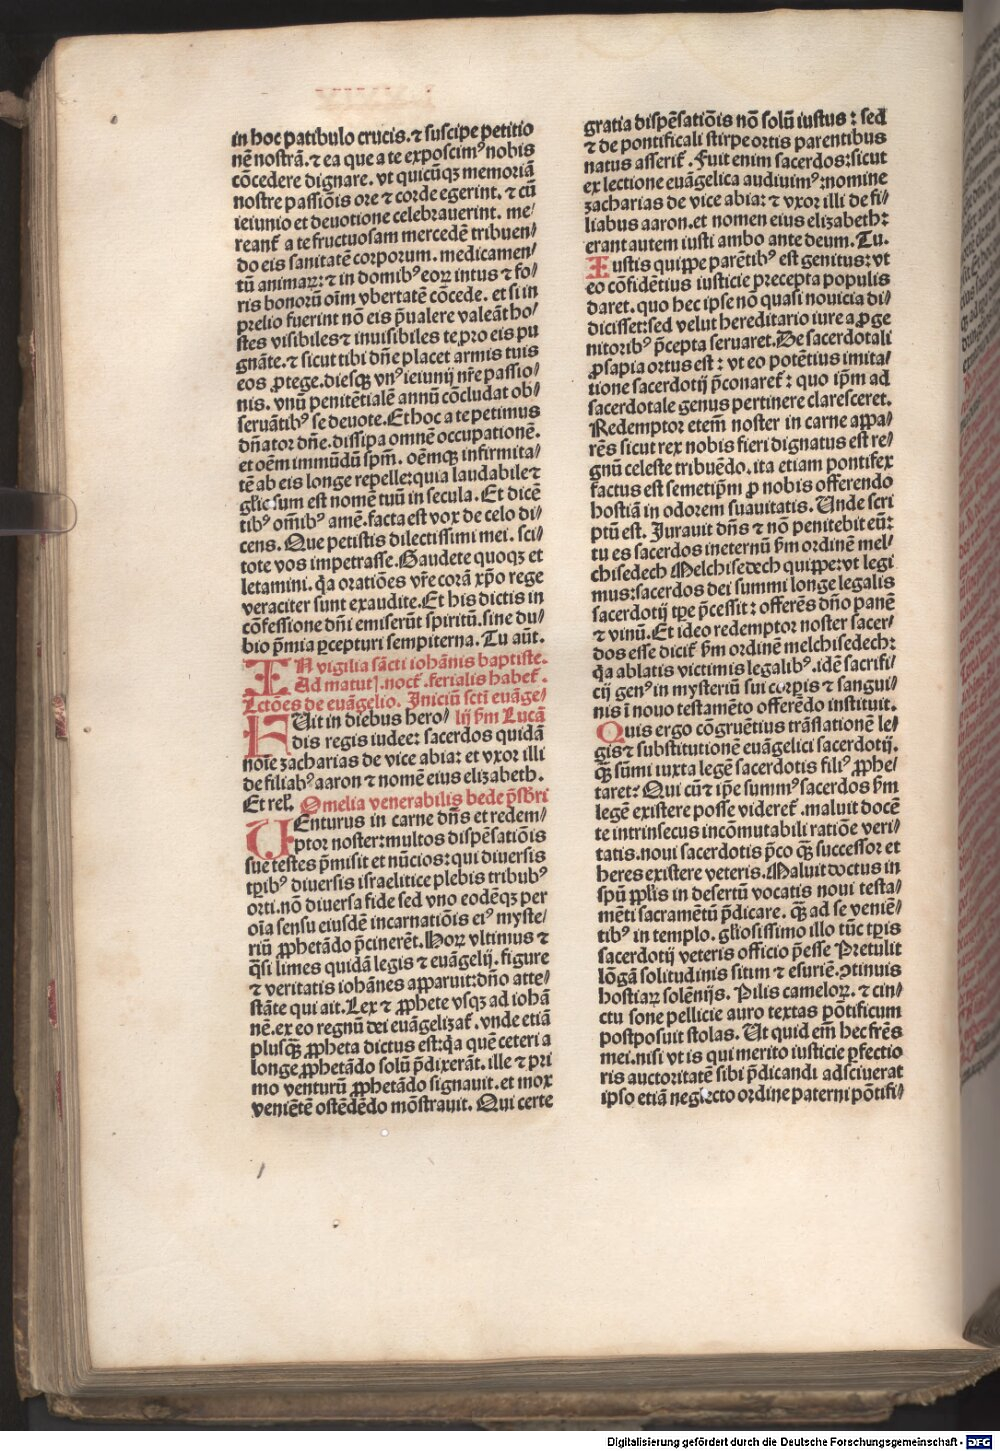 in hoc patibulo crucis. ⁊ suscipe petitio
nē nostrā. ⁊ ea que a te exposcimꝰ nobis
cōcedere dignare. vt quicūqꝫ memoriā
nostre passiōis ore ⁊ corde egerint. ⁊ cū
ieiunio et deuotione celebrauerint. me/
reant̄ a te fructuosam mercedē tribuen/
do eis sanitatē corporum. medicamen/
tū animaꝝ: ⁊ in domibꝰ eoꝝ intus ⁊ fo/
ris bonorū oīm vbertatē cōcede. et si in
prelio fuerint nō eis p̄ualere valeāt ho/
stes visibiles ⁊ inuisibiles te pro eis pu
gnāte. ⁊ sicut tibi dn̄e placet armis tuis
eos ꝓtege. diesqꝫ vnꝰ ieiunij nr̄e passio/
nis. vnū penitētialē annū cōcludat ob/
seruātibꝰ se deuote. Et hoc a te petimus
dn̄ator dn̄e. dissipa omnē occupationē.
et oēm immūdū spm̄. oēmqꝫ infirmita/
tē ab eis longe repelle: quia laudabile ⁊
gl̄iosum est nomē tuū in secula. Et dicē
tibꝰ om̄ibꝰ amē. facta est vox de celo di/
cens. Que petistis dilectissimi mei. sci/
tote vos impetrasse. Gaudete quoqꝫ et
letamini. q̄a oratiōes vr̄e corā xp̄o rege
veraciter sunt exaudite. Et his dictis in
cōfessione dn̄i emiserūt spiritū. sine du/
bio p̄mia ꝑcepturi sempiterna. Tu aūt.
IN vigilia sācti iohānis baptiste.
Ad matut̄. noct̄. ferialis habet̄.
Lctōes de euāgelio. Iniciū scti euāge/
FUit in diebus hero/ lij ẜm Lucā
dis regis iudee: sacerdos quidā
noīe zacharias de vice abia: et vxor illi
de filiabꝰ aaron ⁊ nomē eius elizabeth.
Et rel̄. Omelia venerabilis bede p̄sbr̄i
VEnturus in carne dn̄s et redem/
ptor noster: multos dispēsatiōis
sue testes p̄misit et nūcios: qui diuersis
tꝑibꝰ diuersis israelitice plebis tribubꝰ
orti. nō diuersa fide sed vno eodēqꝫ per
oīa sensu eiusdē incarnatiōis eiꝰ myste/
riū ꝓphetādo p̄cinerēt. Hoꝝ vltimus ⁊
q̄si limes quidā legis ⁊ euāgelij. figure
⁊ veritatis iohānes apparuit: dn̄o atte/
stāte qui ait. Lex ⁊ ꝓphete vsqꝫ ad iohā
nē. ex eo regnū dei euāgelizat̄. vnde etiā
plusq̄ꝫ ꝓpheta dictus est: q̄a quē ceteri a
longe ꝓphetādo solū p̄dixerāt. ille ⁊ pri
mo venturū ꝓphetādo signauit. et mox
veniētē ostēdēdo mōstrauit. Qui certe
gratia dispēsatiōis nō solū iustus: sed
⁊ de pontificali stirpe ortis parentibus
natus asserit̄. Fuit enim sacerdos: sicut
ex lectione euāgelica audiuimꝰ: nomine
zacharias de vice abia: ⁊ vxor illi de fi/
liabus aaron. et nomen eius elizabeth:
erant autem iusti ambo ante deum. Tu.
Iustis quippe parētibꝰ est genitus: vt
eo cōfidētius iusticie precepta populis
daret. quo hec ipse nō quasi nouicia di/
dicisset: sed velut hereditario iure a ꝓge
nitoribꝰ p̄cepta seruaret. De sacerdotali
ꝓsapia ortus est: vt eo potētius imita/
tione sacerdotij p̄conaret̄: quo ip̄m ad
sacerdotale genus pertinere claresceret.
Redemptor etem̄ noster in carne appa/
rēs sicut rex nobis fieri dignatus est re/
gnū celeste tribuēdo. ita etiam pontifex
factus est semetip̄m ꝓ nobis offerendo
hostiā in odorem suauitatis. Unde scri
ptū est. Jurauit dn̄s ⁊ nō penitebit eū:
tu es sacerdos ineternū ẜm ordinē mel/
chisedech Melchisedech quippe: vt legi
mus: sacerdos dei summi longe legalis
sacerdotij tꝑe p̄cessit: offerēs dn̄o panē
⁊ vinū. Et ideo redemptor noster sacer/
dos esse dicit̄ ẜm ordinē melchisedech:
q̄a ablatis victimis legalibꝰ. idē sacrifi/
cij genꝰ in mysteriū sui corpis ⁊ sangui/
nis ī nouo testamēto offerēdo instituit.
Quis ergo cōgruētius trāslationē le/
gis ⁊ substitutionē euāgelici sacerdotij.
q̄ꝫ sūmi iuxta legē sacerdotis filiꝰ ꝓphe/
taret: Qui cū ⁊ ip̄e summꝰ sacerdos ẜm
legē existere posse videret̄. maluit docē
te intrinsecus incōmutabili ratiōe veri/
tatis. noui sacerdotis p̄co q̄ꝫ successor et
heres existere veteris. Maluit doctus in
spū ꝓplis in desertū vocatis noui testa/
mēti sacramētū p̄dicare. q̄ꝫ ad se veniē/
tibꝰ in templo. gl̄iosissimo illo tūc tꝑis
sacerdotij veteris officio p̄esse Pretulit
lōgā solitudinis sitim ⁊ esuriē. ꝯtinuis
hostiaꝝ solēnijs. Pilis cameloꝝ. ⁊ cin/
ctu sone pellicie auro textas pōtificum
postposuit stolas. Ut quid em̄ hec fr̄ēs
mei. nisi vt is qui merito iusticie ꝑfectio
ris auctoritatē sibi p̄dicandi adsciuerat
ipso etiā neglecto ordine paterni pōtifi/
Digitalisierung gefördert durch die Deutsche Forschungsgemeinschaft - DFG